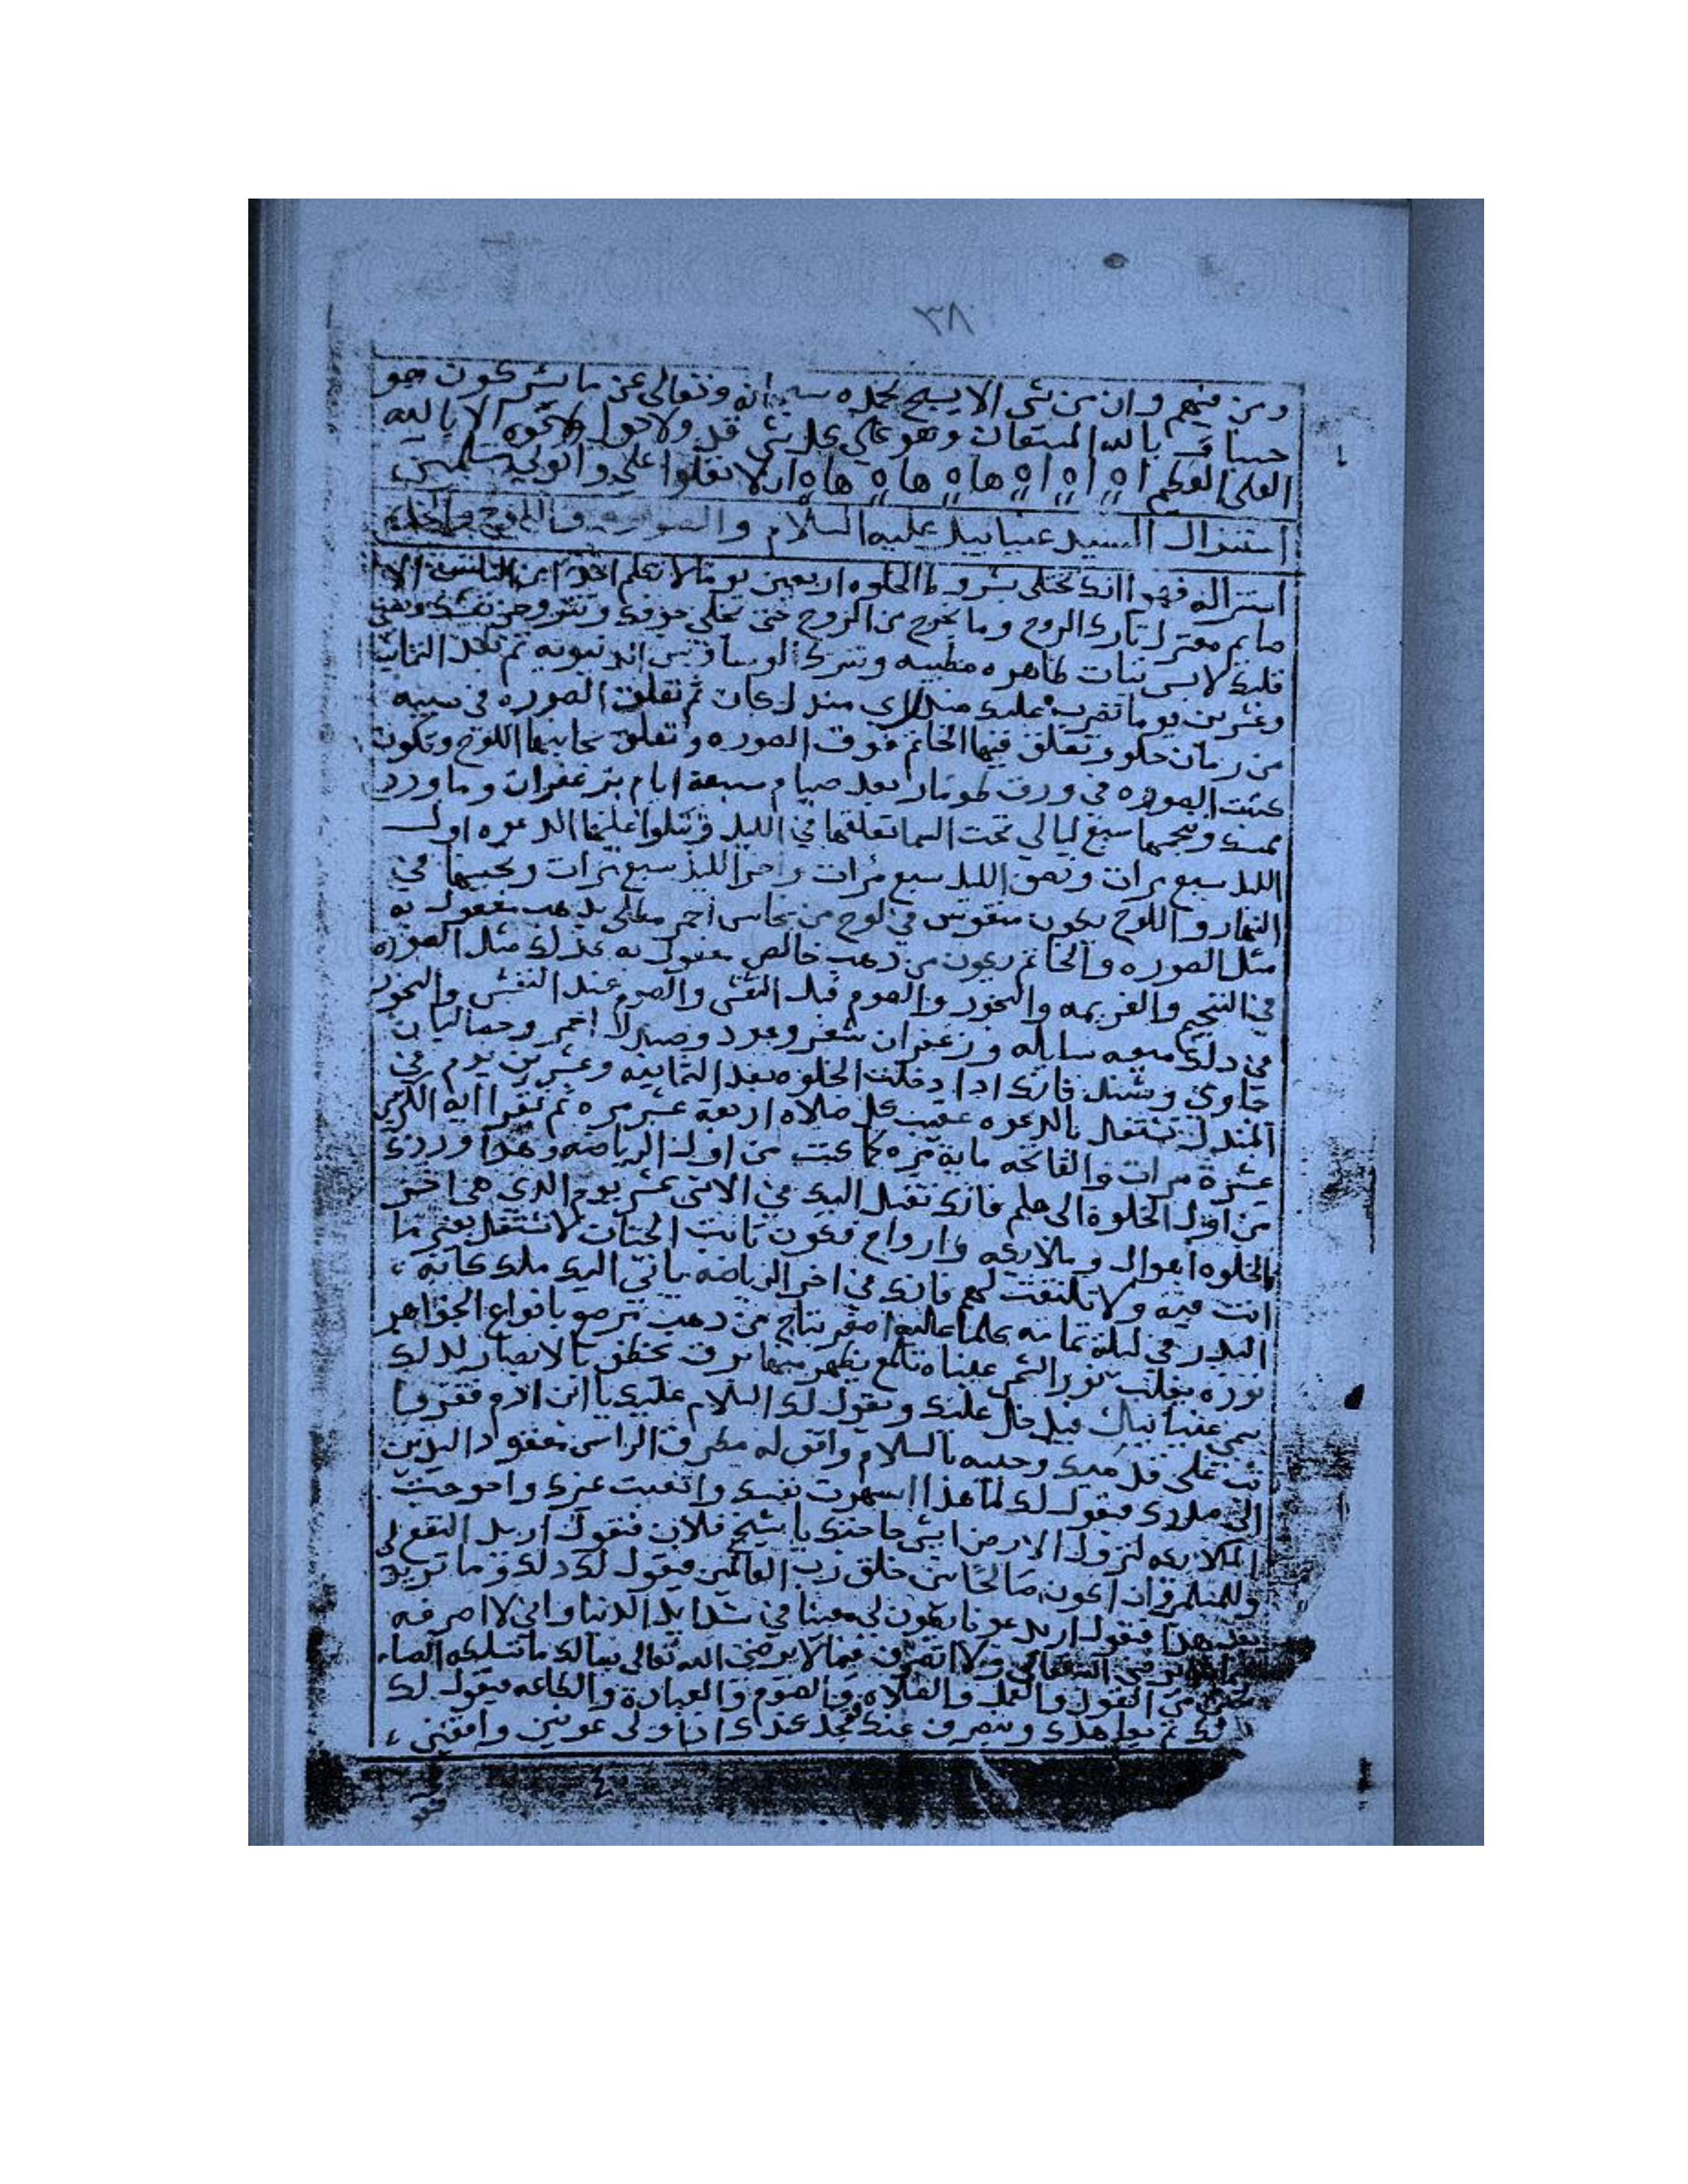 ٣٨
ومن فيهم وان من شي الا يسبح بحمده سبحانه وتعالى عن ما يشركون هو
حسبنا بالله المستعان وهو علي كل شي ولا حول ولا قوه الا بالله
العلي العظيم اه اه اه اه هاه هاه هاه ان لا تعلوا علي واتوني مسلمين
استنزال السيد عنيابيل عليه السلام والصوره واللوح والخاتم
استنزاله فهو انك تختلي بشروط الخلوه اربعين يوما لا تعلم احدا من الناس الا
صايم معتزل تارك الروح وما يخرج من الروح حتى يخلي جوفك وتتروحن نفسك
قلبك لابس تياب طاهره مطيبه وتترك الوساوس الدنيويه ثم بعد التمانيه
وعشرين يوما تضرب عليك مندل اي مندل كان ثم تعلق الصوره في سيبه
من رمان حلو وتعلق فيها الخاتم فوق الصوره وتعلق بجانبها اللوح وتكون
كتبت الصوره في ورق طومار بعد صيام سبعة ايام بزعفران وما ورد
ممسك وتنجمها سبع ليالي تحت السما تعلقها في الليل وتتلوا عليها الدعوه اول
الليل سبع مرات ونصف الليل سبع مرات واخر الليل سبع مرات وتحبيها في
النهار واللوح يكون منقوش في لوح من نحاس احمر مطلي بدهب مفعول به
مثل الصوره والخاتم يكون من دهب خالص مفعول به كذلك مثل الصوره
في التنجيم والعزيمه والبخور والصوم قبل النقش والصوم عند النقش والبخور
في دلك ميعه سايله وزعفران شعر وعود وصندل احمر وحصالبان
جاوي وسنبل فانك ادا دخلت الخلوه بعد التمانيه وعشرين يوم في
المندل تشتغل بالدعوه عقيب كل صلاه اربعة عشر مره ثم تقرا اية الكرسي
عشرة مرات والفاتحه ماية مره كما كنت من اول الرياضه وهدا وردك
من اول الخلوة الى هلم فانك تقبل اليك في الاتنى عشر يوم الدي هي اخر
الخلوه اهوال وملايكه وارواح فكون تابت الجنان لا تشتغل بغير ما
انت فيه ولا تلتفت لهم فانك في اخر الرياضه ياتي اليك ملك كانه
البدر في ليلة تمامه اصفر بتاج من دهب مرصع بانواع الجواهر
نوره يغلب نور الشمس عيناه تلمع يظهر منها برق تخطف بالابصار لدلك
سمي عنيانيال فيدخل عليك ويقول لك السلام عليك يا ابن الادم فقف
وحييه بالسلام واقف له مطرق الراس معقود اليدين
الى صدرك فيقول لك لما هذا اسهرت نفسك واتعبت غيرك واحوجت
الملايكه لنزول الارض ايش حاجتك يا شيخ فلان فتقول اريد النفع لي
وللمسلمين وان اكون صالحا بين خلق رب العالمين فيقول لك دلك وما تريد
بعد هدا فتقول اريد عونا يكون لي معينا في شدايد الدنيا واني لا اصرفه
الله تعالى ولا اتصرف فيما لا يرضي الله تعالى
من القول والعمل والصلاه والصوم والعباده والطاعه فيقول لك
ثم يعاهدك وينصرف عنك